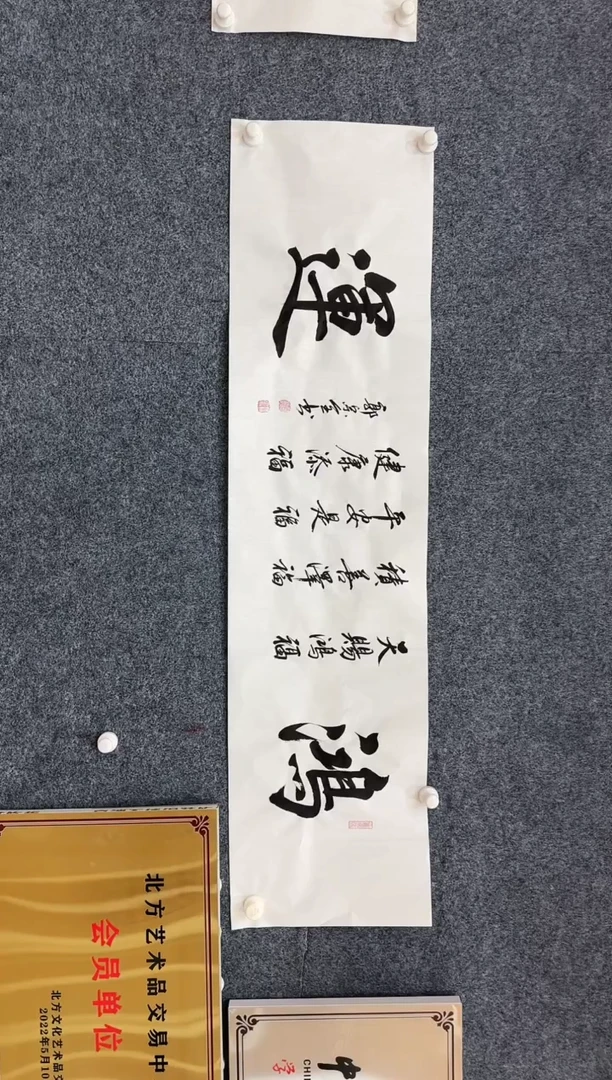 鴻
天賜鴻福
積善澤福
平安是福
健康添福
郭景全书
運
北方艺术品交易中
会员单位
北方文化艺术品交
2022年5月10
中
CHI
学